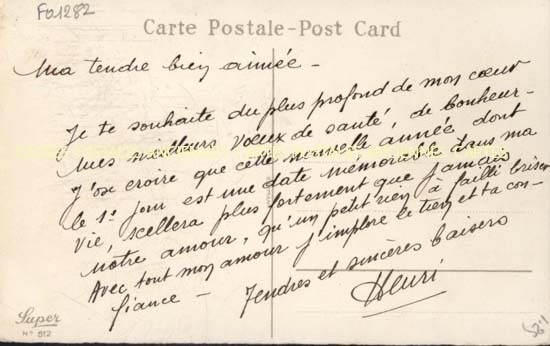 Fa1282
Carte Postale-Post Card
Ma tendre bien aimée -
Je te souhaite du plus profond de mon cœur
mes meilleurs vœux de santé, de bonheur -
J'ose croire que cette nouvelle année dont
le 1er jour est une date mémorable dans ma
vie, scellera plus fortement que jamais
notre amour, qu'un petit rien a failli briser
Avec tout mon amour j'implore le tien et ta con-
fiance - Tendres et sincères baisers
Henri
Super
N° 512